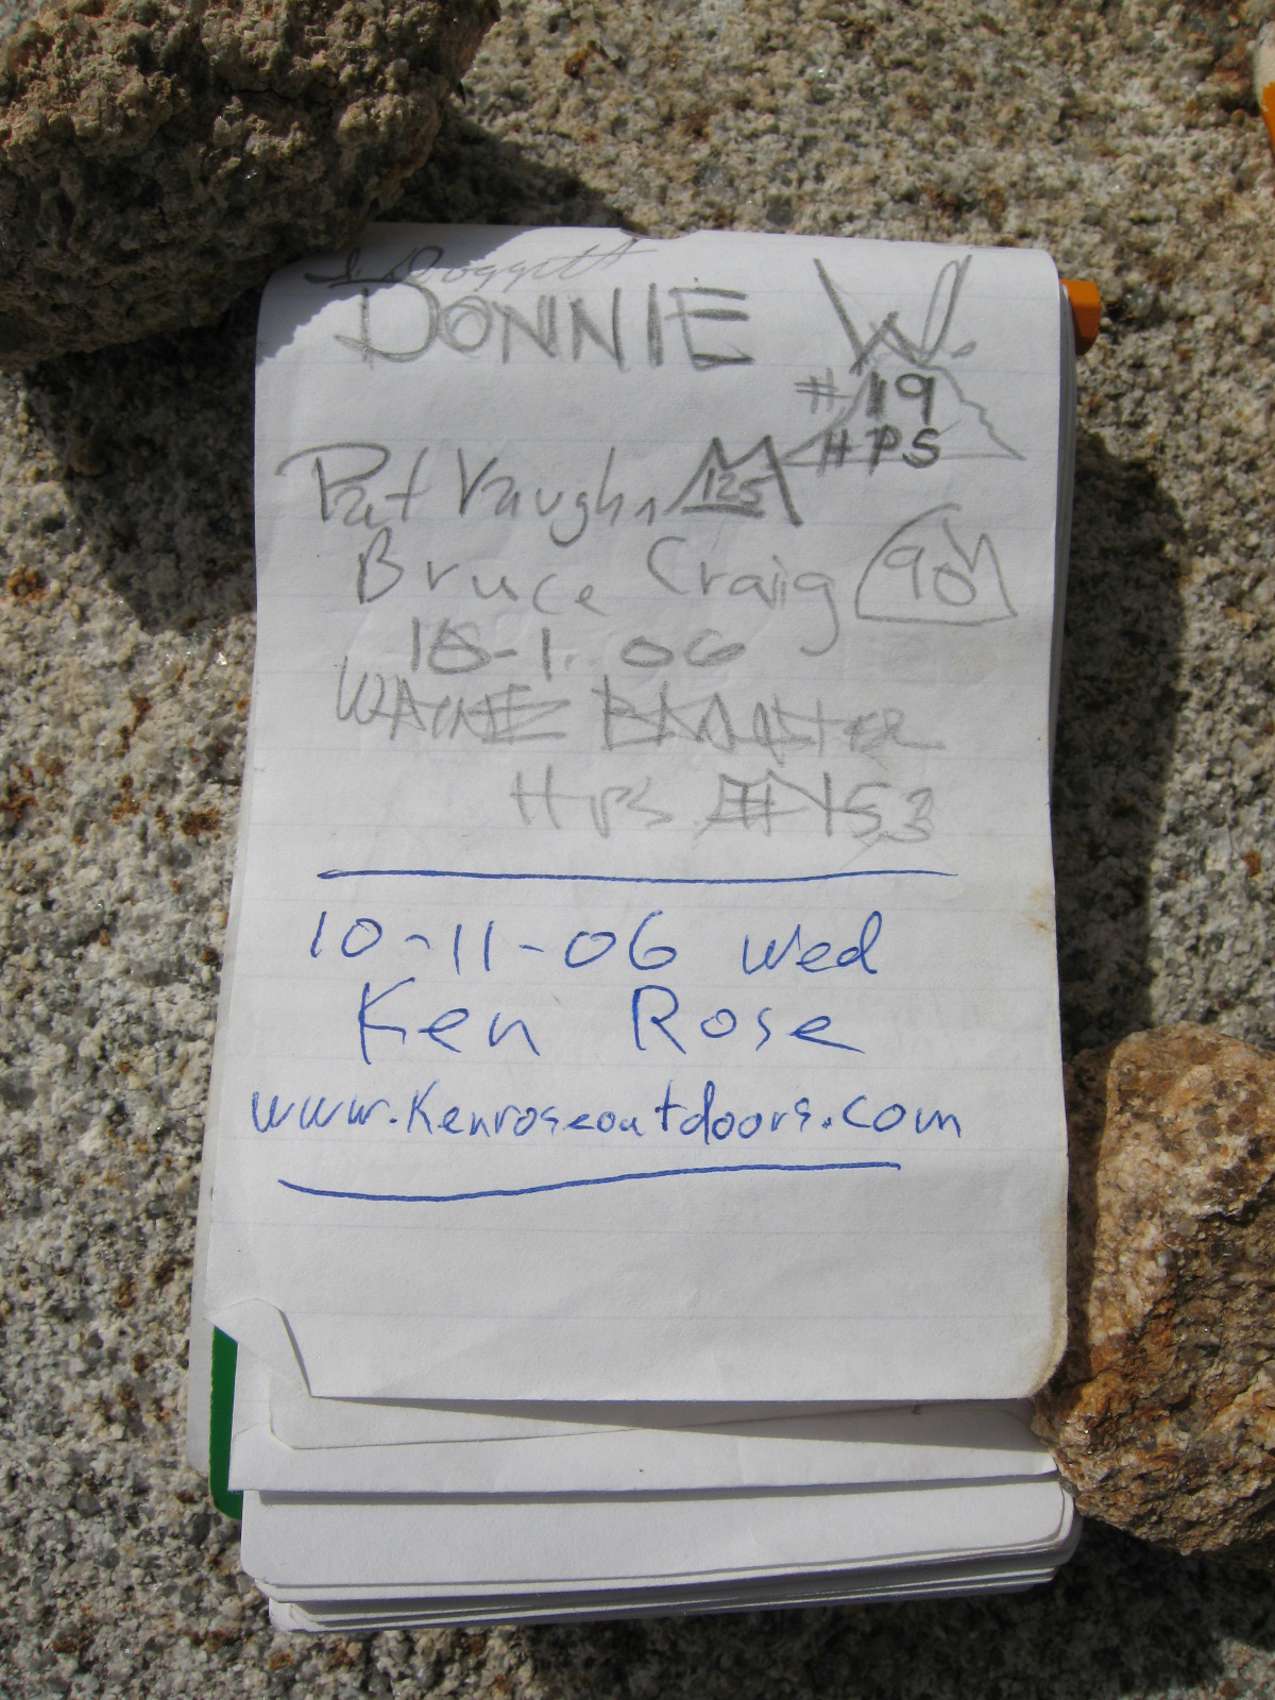 J. Doggett
DONNIE W.
#19
HPS
Pat Vaughn 125
Bruce Craig 90
10-1-06
WAYNE
HPS #153
10-11-06 Wed
Ken Rose
www.Kenroseoutdoors.com